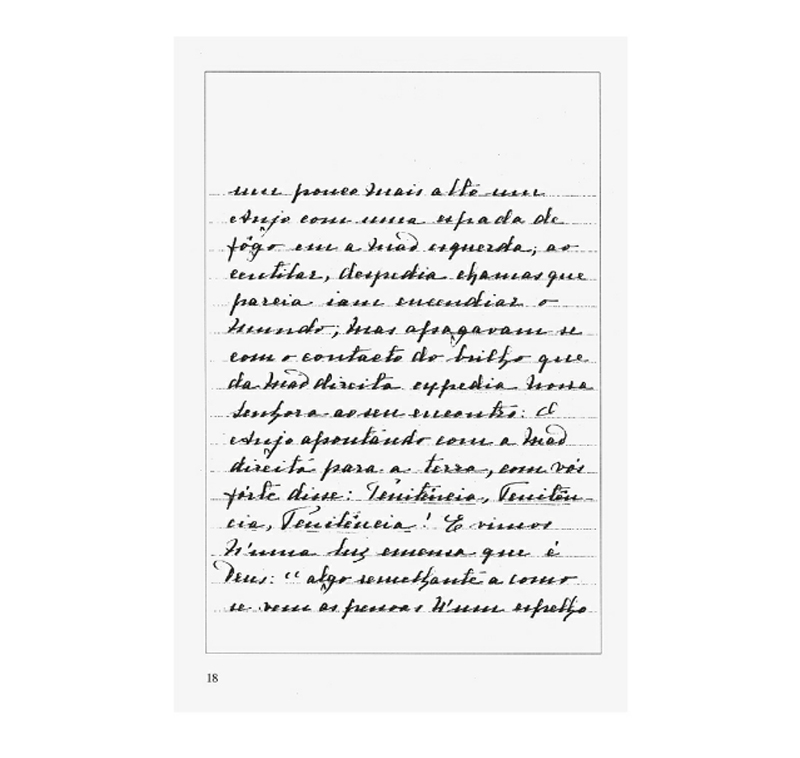 um pouco mais alto um
Anjo com uma espada de
fôgo em a mão esquerda; ao
centilar, despedia chamas que
pareia iam encendiar o
mundo; mas apagavam-se
com o contacto do brilho que
da mão direita expedia Nossa
Senhora ao seu encontro: O
Anjo apontando com a mão
direita para a terra, com vós
fórte disse: Penitência, Peniten-
cia, Penitência! E vimos
n'uma luz emensa que é
Deus: "algo semelhante a como
se vem as pessoas n'um espelho
18